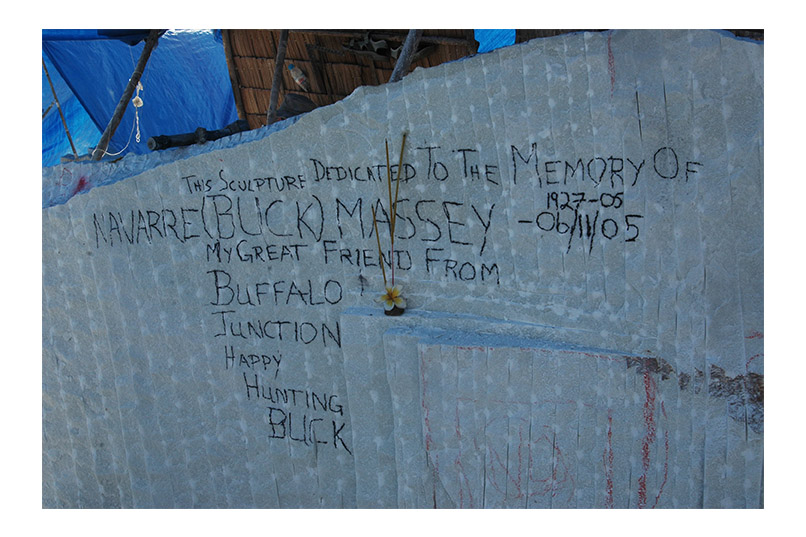 THIS SCULPTURE DEDICATED TO THE MEMORY OF
NAVARRE (BUCK) MASSEY
1927-05
-06/11/05
MY GREAT FRIEND FROM
BUFFALO
JUNCTION
HAPPY
HUNTING
BUCK